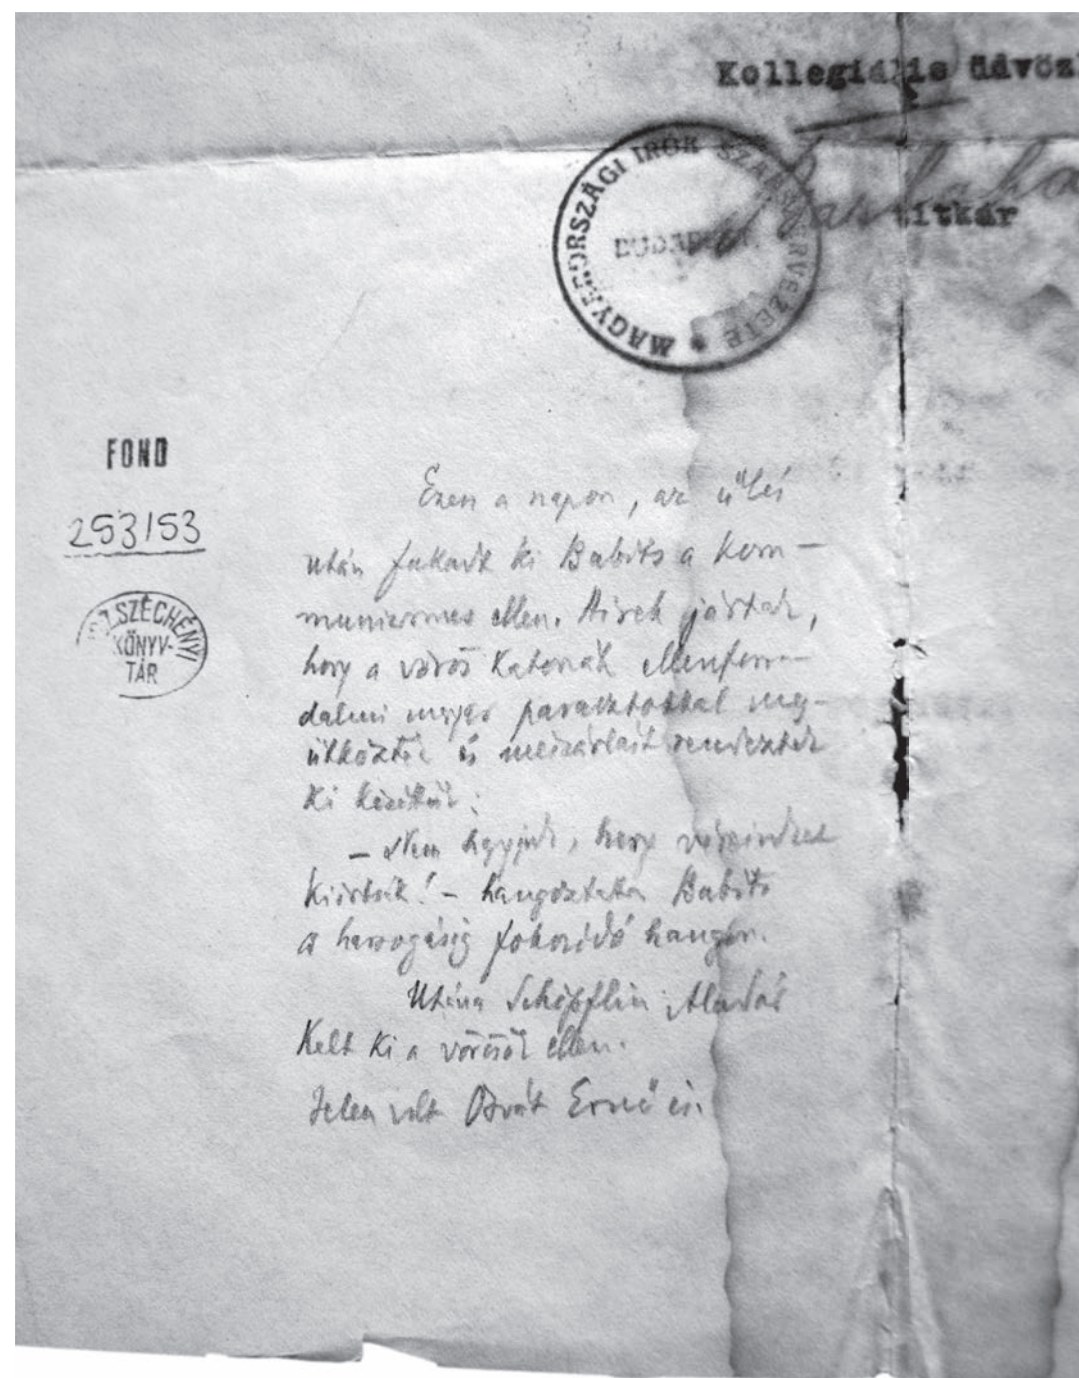 Kollegiális üdvöz
titkár
MAGYARORSZÁGI IRÓK SZAKSZERVEZETE
BUDAPEST
FOND
253/53
SZÉCHÉNYI
KÖNYV-
TÁR
Ezen a napon, az ülés
után fakadt ki Babits a kom-
munizmus ellen. Hirek jártak,
hogy a vörös katonák ellenforra-
dalmi magyar parasztokkal meg-
ütköztek és mészárlást rendeztek
ki közöttük:
– Nem hagyjuk, hogy véreinket
kiirtsák! – hangoztatta Babits
a harsogásig fokozódó hangon.
Utána Schöpflin Aladár
kelt ki a vörösök ellen.
Jelen volt Osvát Ernő is.